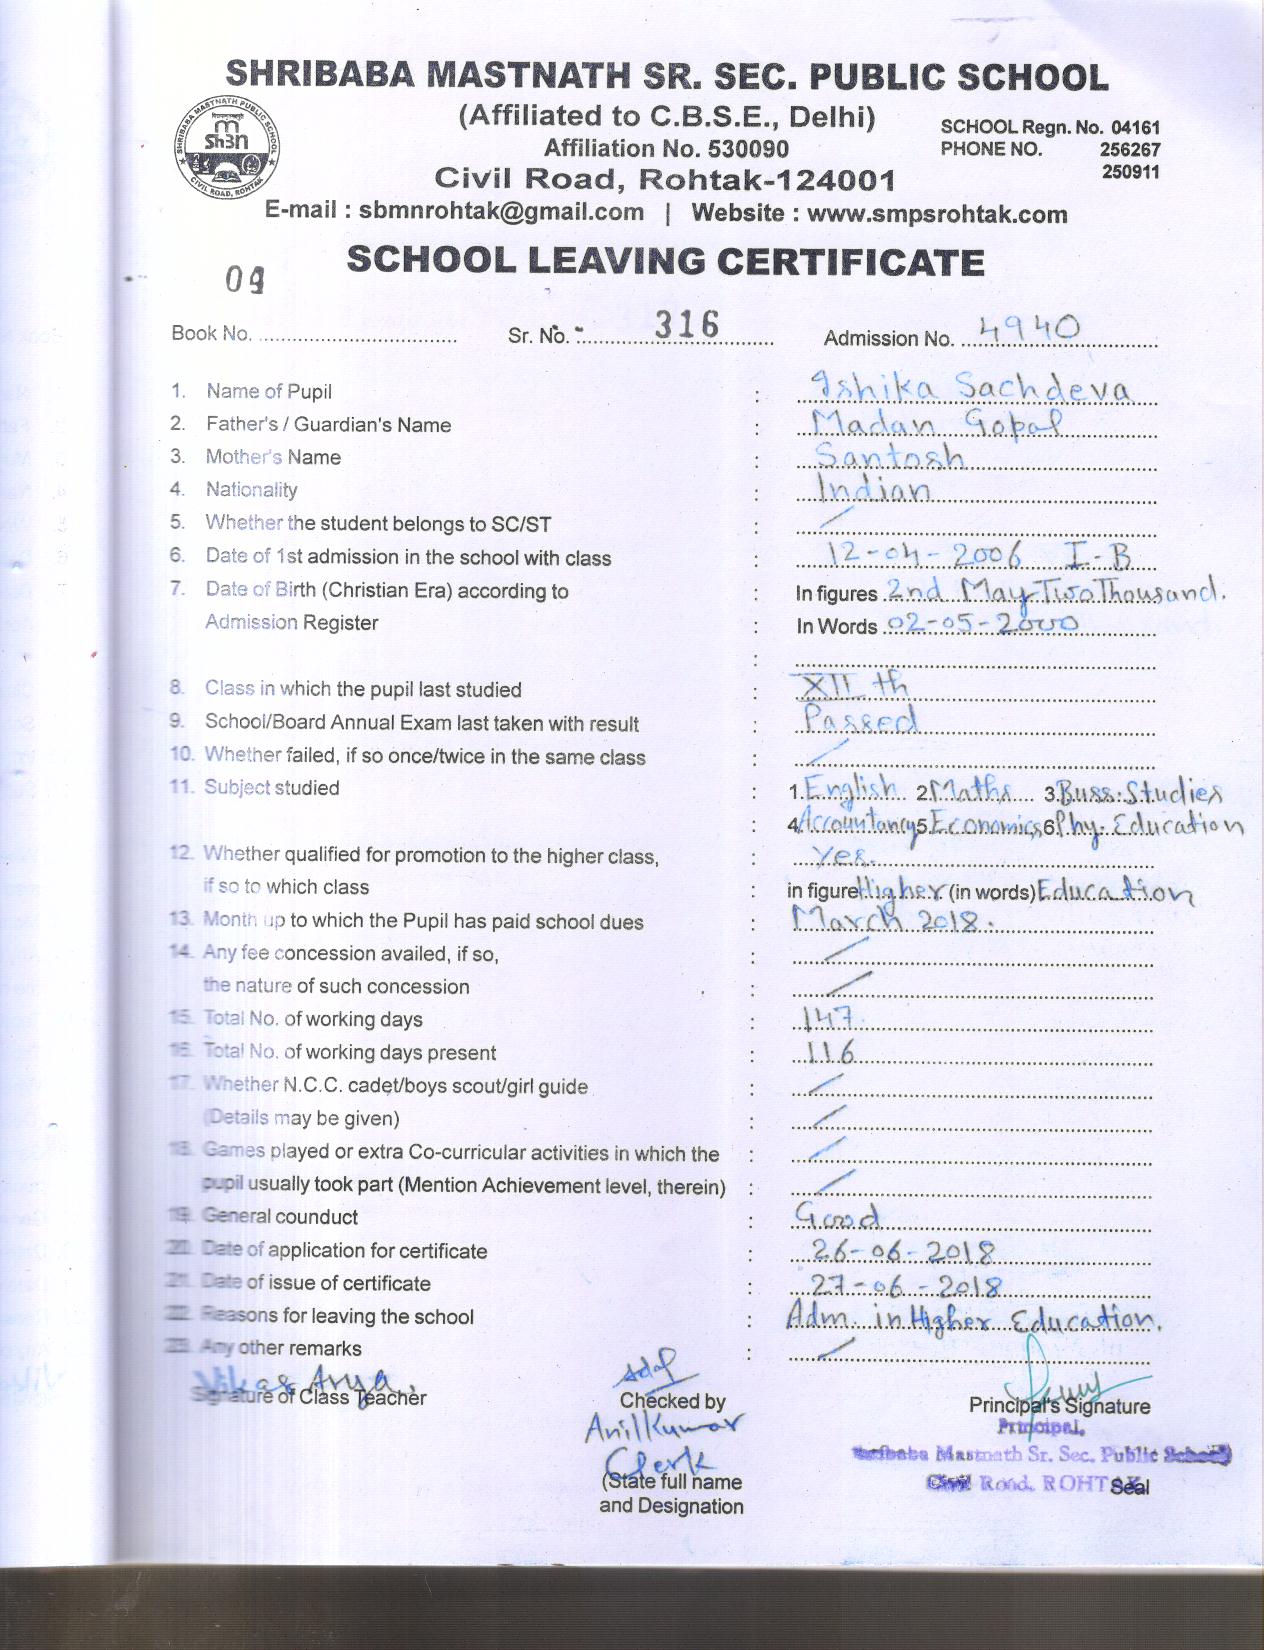 SHRIBABA MASTNATH SR. SEC. PUBLIC SCHOOL
(Affiliated to C.B.S.E., Delhi)
SHRIBABA MASTNATH PUBLIC SCHOOL
CIVIL ROAD, ROHTAK
SCHOOL Regn. No. 04161
Affiliation No. 530090
PHONE NO. 256267
250911
Civil Road, Rohtak-124001
E-mail : sbmnrohtak@gmail.com | Website : www.smpsrohtak.com
SCHOOL LEAVING CERTIFICATE
09
Book No. Sr. No. 316 Admission No. 4940
1. Name of Pupil : Ishika Sachdeva
2. Father's / Guardian's Name : Madan Gopal
3. Mother's Name : Santosh
4. Nationality : Indian
5. Whether the student belongs to SC/ST : /
6. Date of 1st admission in the school with class : 12-04-2006 I-B
7. Date of Birth (Christian Era) according to : In figures 2nd May Two Thousand.
Admission Register : In Words 02-05-2000
:
8. Class in which the pupil last studied : XII th
9. School/Board Annual Exam last taken with result : Passed
10. Whether failed, if so once/twice in the same class : /
11. Subject studied : 1. English 2. Maths 3. Buss. Studies
: 4. Accountancy 5. Economics 6. Phy. Education
12. Whether qualified for promotion to the higher class, : Yes.
if so to which class : in figure Higher (in words) Education
13. Month up to which the Pupil has paid school dues : March 2018.
14. Any fee concession availed, if so, : /
the nature of such concession : /
15. Total No. of working days : 147
16. Total No. of working days present : 116
17. Whether N.C.C. cadet/boys scout/girl guide : /
(Details may be given) : /
18. Games played or extra Co-curricular activities in which the : /
pupil usually took part (Mention Achievement level, therein) : /
19. General counduct : Good
20. Date of application for certificate : 26-06-2018
21. Date of issue of certificate : 27-06-2018
22. Reasons for leaving the school : Adm. in Higher Education.
23. Any other remarks : /
Vikas Arya
Signature of Class Teacher Checked by Principal's Signature
Anil Kumar Principal,
Clerk Shribaba Mastnath Sr. Sec. Public School
(State full name Civil Road, ROHTAK Seal
and Designation